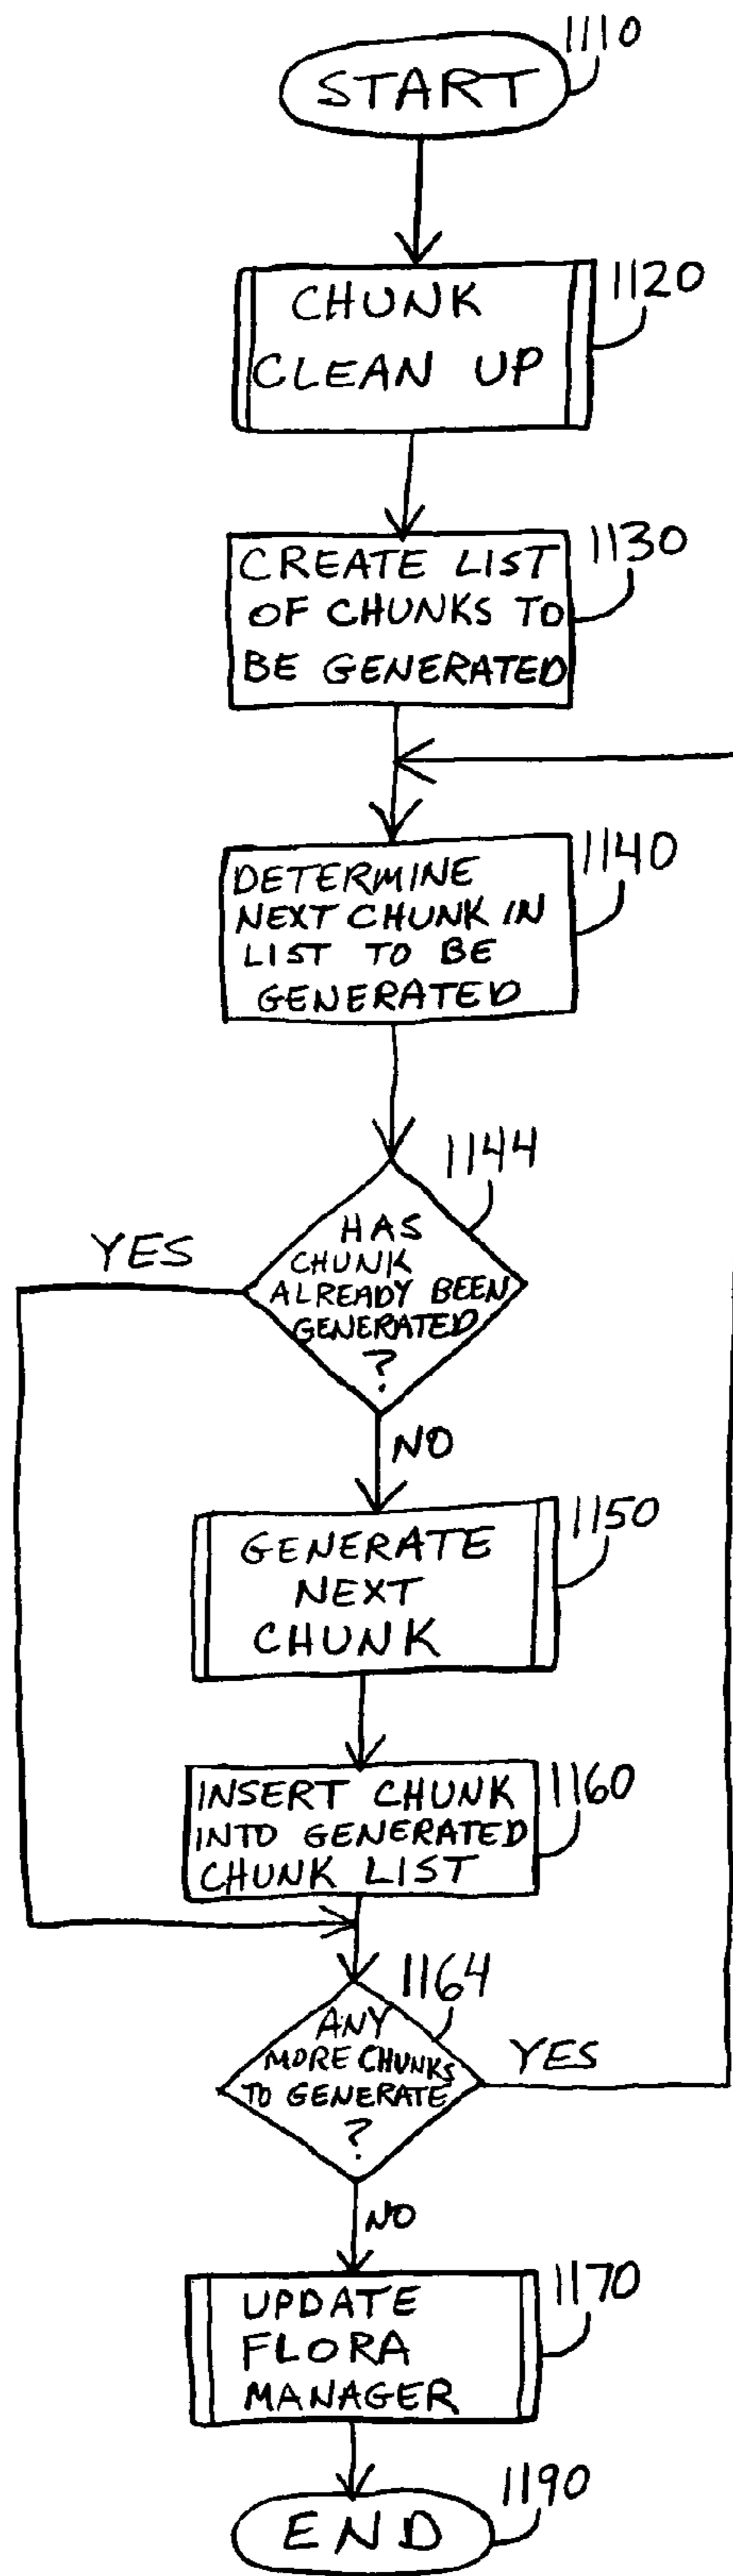 1110
START
1120
CHUNK
CLEAN UP
1130
CREATE LIST
OF CHUNKS TO
BE GENERATED
1140
DETERMINE
NEXT CHUNK IN
LIST TO BE
GENERATED
1144
YES
HAS
CHUNK
ALREADY BEEN
GENERATED
?
NO
1150
GENERATE
NEXT
CHUNK
1160
INSERT CHUNK
INTO GENERATED
CHUNK LIST
1164
ANY
MORE CHUNKS
TO GENERATE
?
YES
NO
1170
UPDATE
FLORA
MANAGER
1190
END